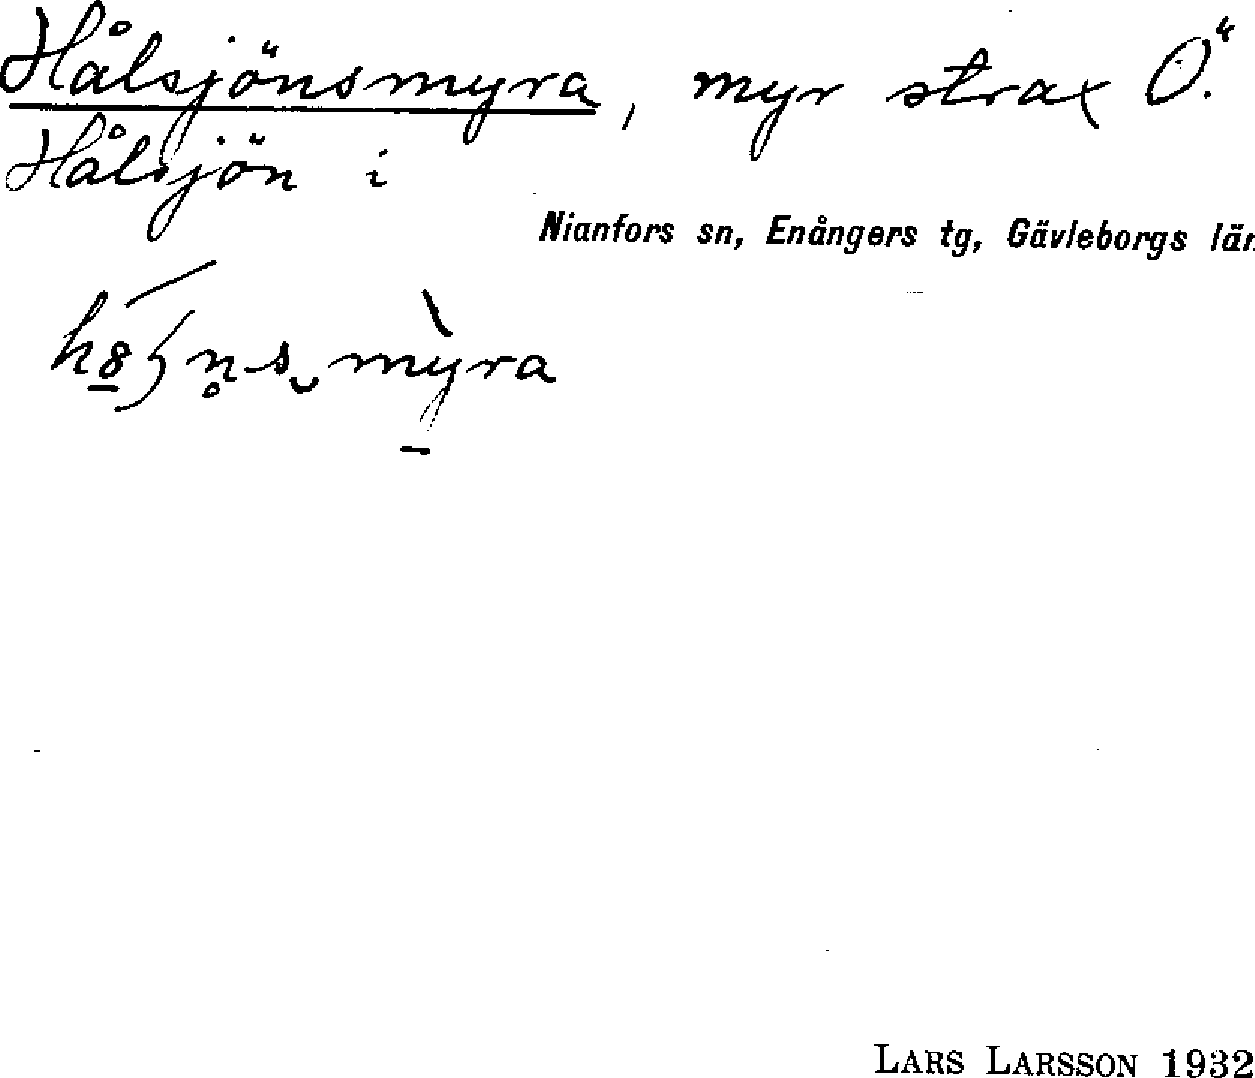 Hålsjönsmyra, myr strax Ö.
Hålsjön i
Nianfors sn, Enångers tg, Gävleborgs län
myra
LARS LARSSON 1932